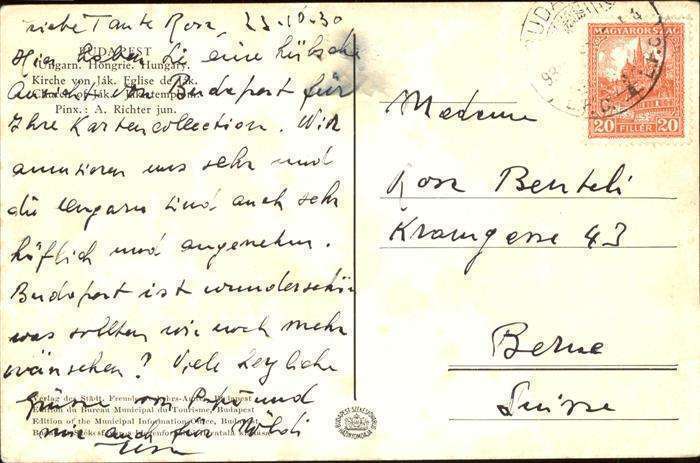 Liebe Tante Rosa, 25.10.30
Hier haben Sie eine hübsche
Ansicht von Budapest für
Ihre Kartencollection. Wir
amusieren uns sehr und
die Ungarn sind auch sehr
höflich und angenehm.
Budapest ist wunderschön
was sollten wir noch mehr
wünschen? Viele herzliche
Grüsse von Papa und
mir auch für
BUDAPEST
Ungarn. Hongrie. Hungary.
Kirche von Ják. Eglise de Ják.
Church of Ják.
Pinx.: A. Richter jun.
Verlag des Städt. Budapest
Edition du Bureau Municipal du Tourisme, Budapest
Edition of the Municipal Information Office, Budapest
MAGYARORSZÁG
20 FILLÉR 20
Madame
Rosa Benteli
Kramgasse 43
Berne
Suisse